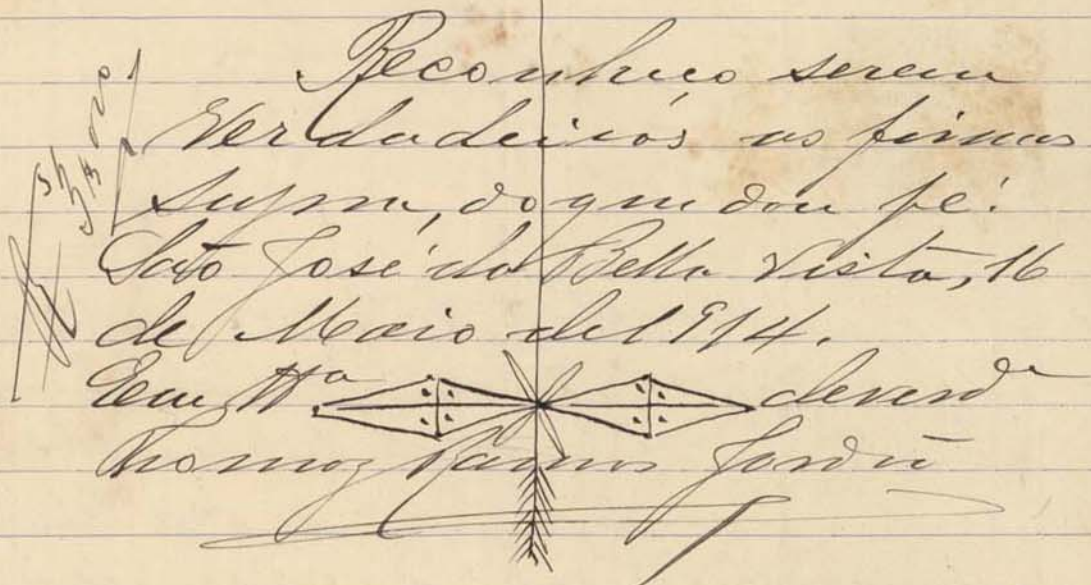 Reconheço serem
Verdadeiras as firmas
supra, do que dou fé.
São José da Bella Vista, 16
de Maio de 1914.
Em Tº da verdᵉ
Thomaz Ramos Jordão